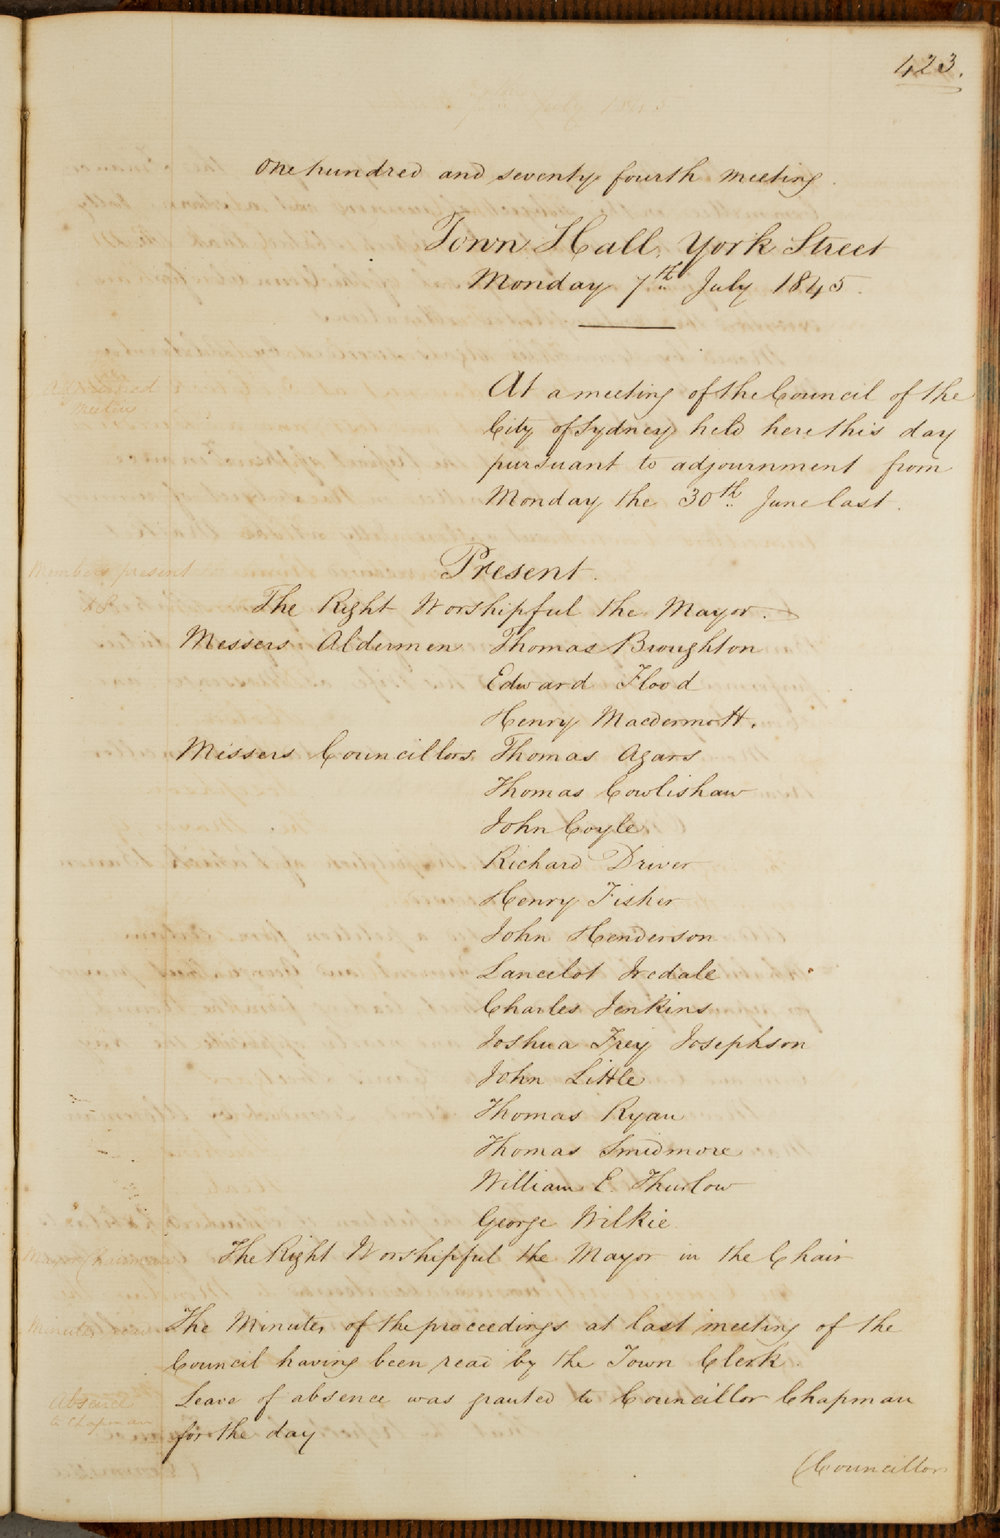 423.
One hundred and seventy fourth meeting.
Town Hall, York Street
Monday 7th July 1845.
Adjourned
Meeting
At a meeting of the Council of the
City of Sydney held here this day
pursuant to adjournment from
Monday the 30th June last.
Members present
Present.
The Right Worshipful the Mayor.
Messers Aldermen Thomas Broughton
Edward Flood
Henry Macdermott.
Messers Councillors Thomas Agars
Thomas Cowlishaw
John Coyle
Richard Driver
Henry Fisher
John Henderson
Lancelot Iredale
Charles Jenkins
Joshua Frey Josephson
John Little
Thomas Ryan
Thomas Smidmore
William E Thurlow
George Wilkie
Mayor Chairman
The Right Worshipful the Mayor in the Chair
Minutes
The Minutes of the proceedings at last meeting of the
Council having been read by the Town Clerk
Absence
to Chapman
Leave of absence was granted to Councillor Chapman
for the day
(Councillor